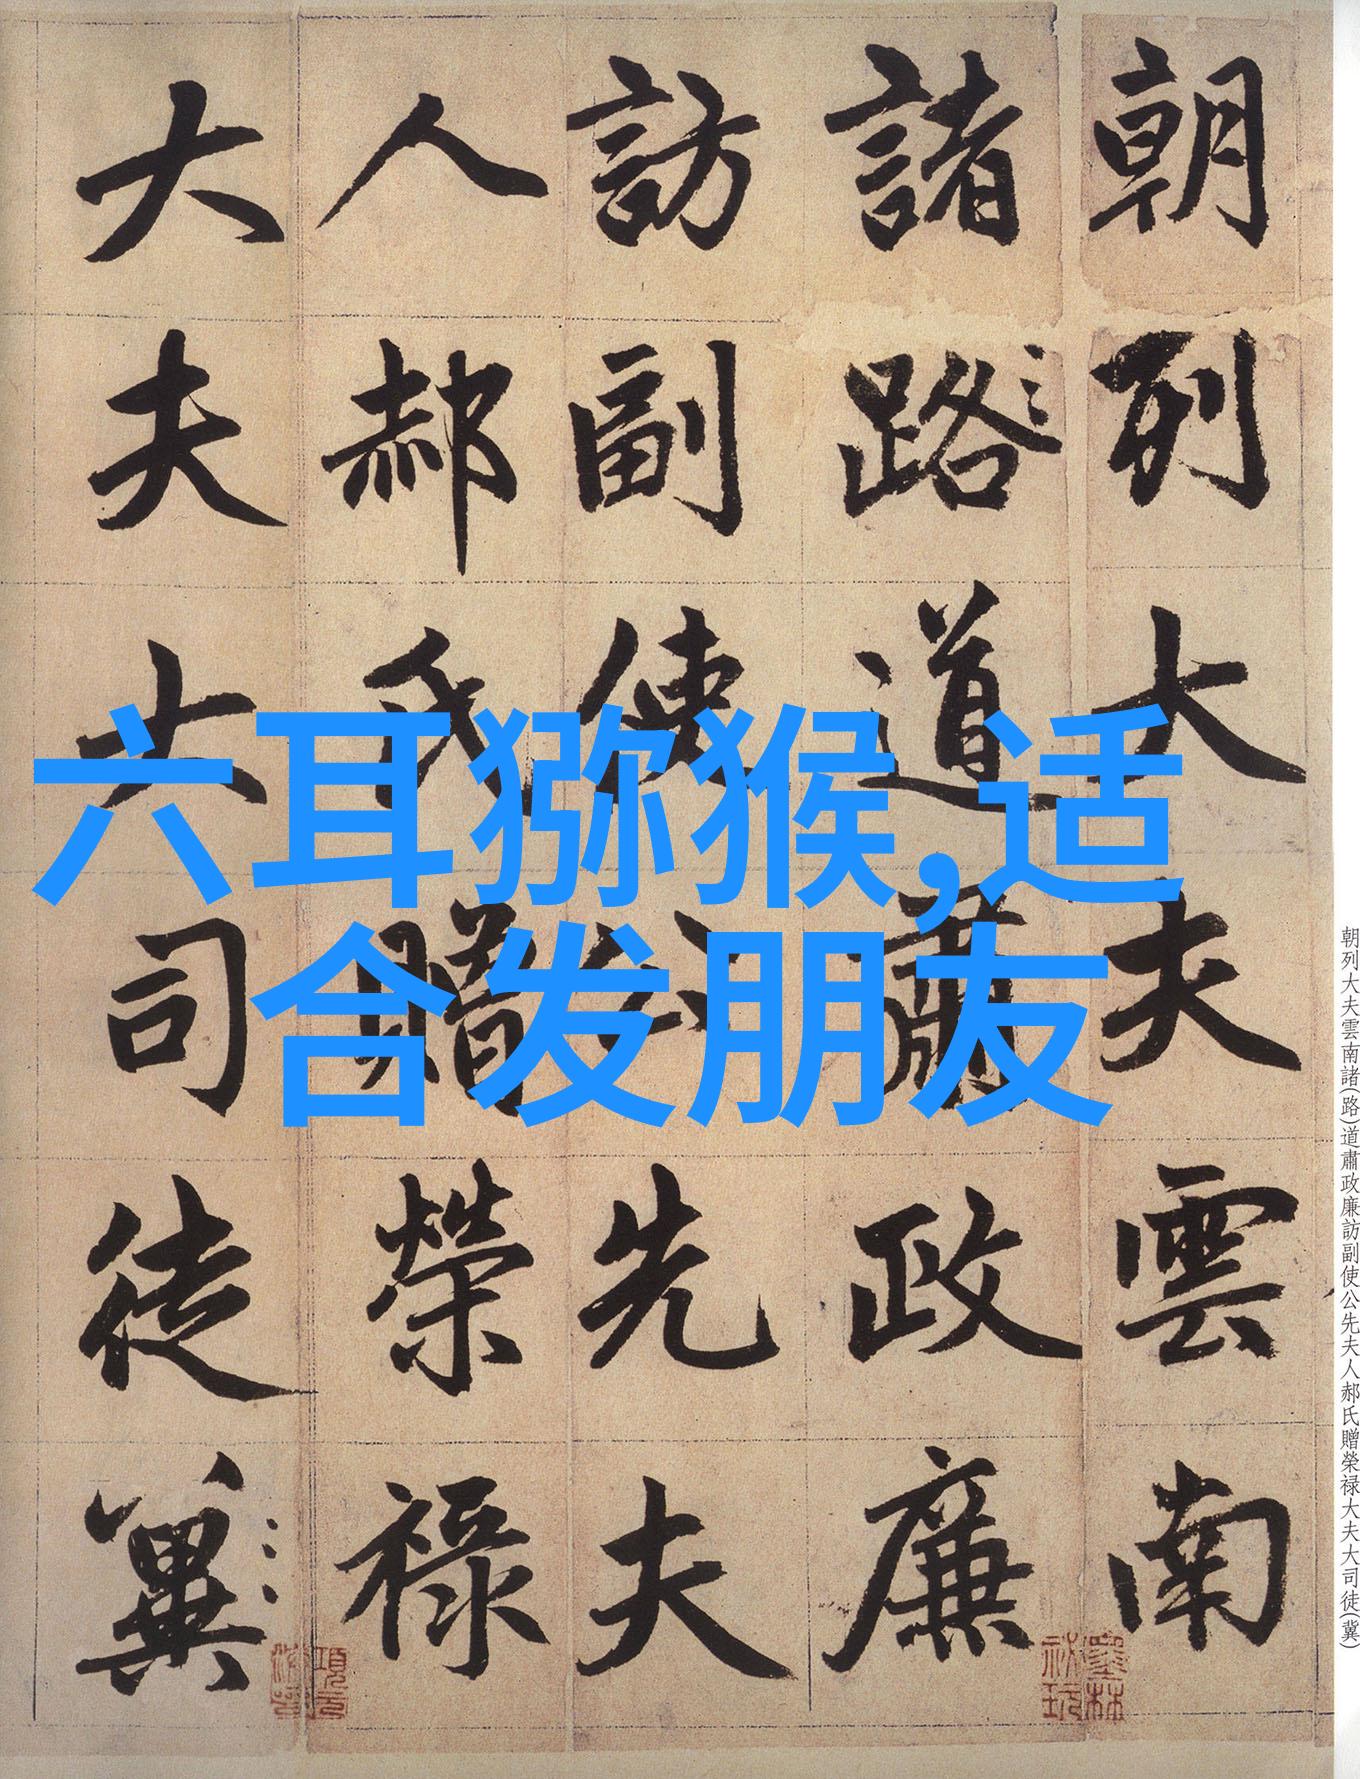 朝列大夫雲南
諸路道肅政廉
訪副使公先夫
人郝氏贈榮祿
大夫大司徒冀
六耳猕猴,适
合发朋友
朝列大夫雲南諸(路)道肅政廉訪副使公先夫人郝氏贈榮禄大夫大司徒(冀)